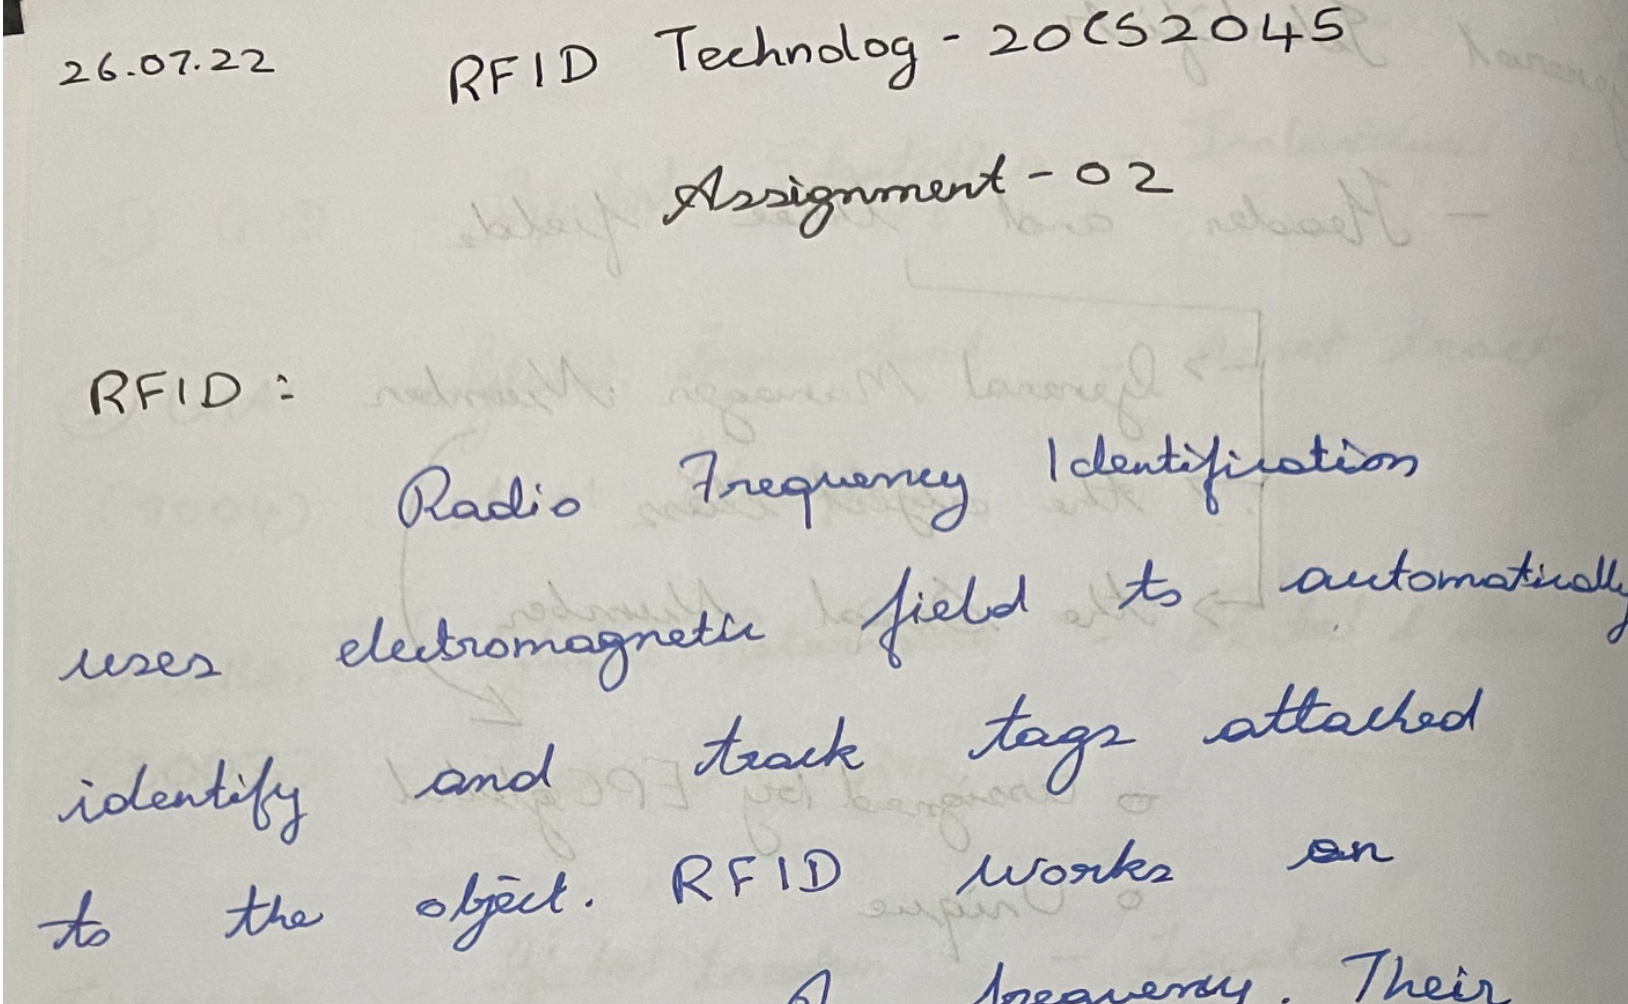 26.07.22 RFID Technolog - 20CS2045
Assignment - 02
RFID :
Radio Frequency Identification
uses electromagnetic field to automatically
identify and track tags attached
to the object. RFID works on
frequency. Their